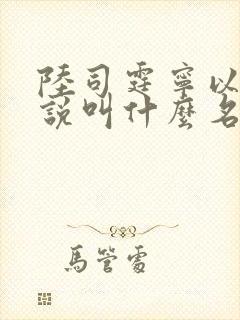 陸司霆寧以
說叫什麼名
馬管露